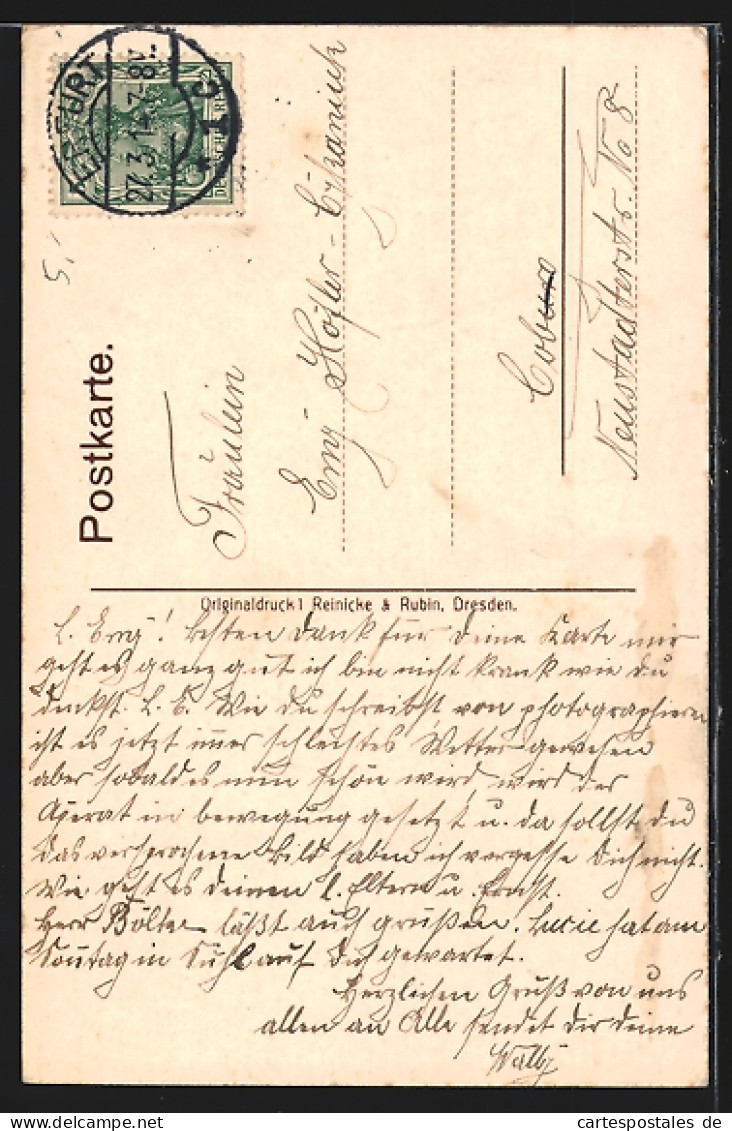 ERFURT
27.3.14.7-8V.
* 1 c
5.
Postkarte.
Fräulein
Emy Höfler
Coburg
Neustadterstr. No 8
Originaldruck 1 Reinicke & Rubin, Dresden.
L. Emy! besten Dank für Deine Karte mir
geht es ganz gut ich bin nicht krank wie Du
denkst. L. E. Wie Du schreibst von photographieren
ist es jetzt immer schlechtes Wetter gewesen
aber sobald es nun schön wird, wird der
Aperat in bewegung gesetzt u. da sollst Du
das versprochene Bild haben ich vergesse Dich nicht.
Wie geht es deinen l. Eltern u. Ernst.
Herr läßt auch grüßen. Lucie hat am
Sonntag in Suhl auf Dich gewartet.
Herzlichen Gruß von uns
allen an Alle sendet dir deine
Wally
www.cartespostales.de
cartespostales.de